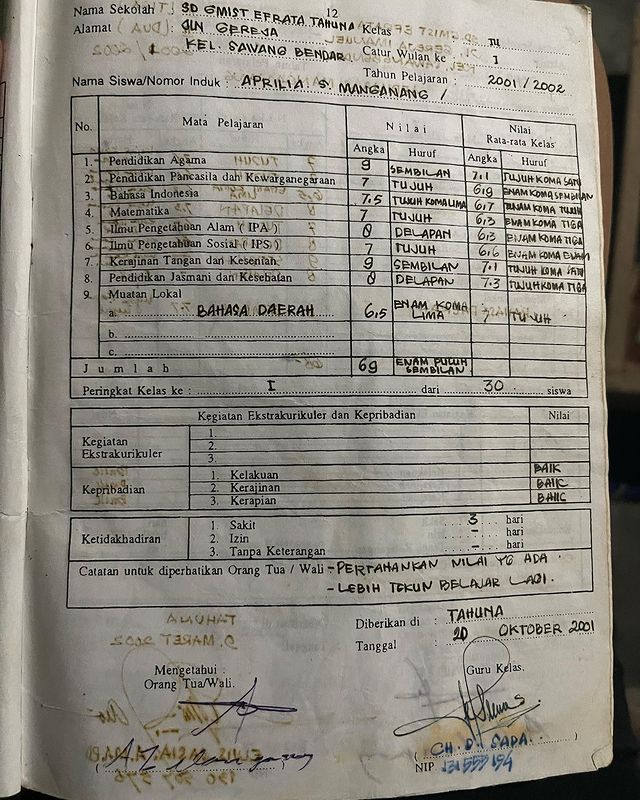 Nama Sekolah : SD GMIST EFRATA TAHUNA
12
Alamat : JLN GEREJA
KEL. SAWANG BENDAR
Kelas : IV
Catur Wulan ke : I
Tahun Pelajaran : 2001 / 2002
Nama Siswa/Nomor Induk : APRILIA S. MANGANANG /
No. Mata Pelajaran Nilai Nilai Rata-rata Kelas
Angka Huruf Angka Huruf
1. Pendidikan Agama 9 SEMBILAN 7.1 TUJUH KOMA SATU
2. Pendidikan Pancasila dan Kewarganegaraan 7 TUJUH 6,9 ENAM KOMA SEMBILAN
3. Bahasa Indonesia 7.5 TUJUH KOMA LIMA 6,7 ENAM KOMA TUJUH
4. Matematika 7 TUJUH 6,3 ENAM KOMA TIGA
5. Ilmu Pengetahuan Alam ( IPA ) 8 DELAPAN 6,3 ENAM KOMA TIGA
6. Ilmu Pengetahuan Sosial ( IPS ) 7 TUJUH 6,6 ENAM KOMA ENAM
7. Kerajinan Tangan dan Kesenian 9 SEMBILAN 7.1 TUJUH KOMA SATU
8. Pendidikan Jasmani dan Kesehatan 8 DELAPAN 7.3 TUJUH KOMA TIGA
9. Muatan Lokal
a. BAHASA DAERAH 6,5 ENAM KOMA LIMA 7 TUJUH
b.
c.
Jumlah 69 ENAM PULUH SEMBILAN
Peringkat Kelas ke : I dari 30 siswa
Kegiatan Ekstrakurikuler dan Kepribadian Nilai
Kegiatan Ekstrakurikuler
1.
2.
3.
Kepribadian
1. Kelakuan BAIK
2. Kerajinan BAIK
3. Kerapian BAIK
Ketidakhadiran
1. Sakit 3 hari
2. Izin - hari
3. Tanpa Keterangan - hari
Catatan untuk diperhatikan Orang Tua / Wali - PERTAHANKAN NILAI YG ADA.
- LEBIH TEKUN BELAJAR LAGI.
Diberikan di : TAHUNA
Tanggal : 20 OKTOBER 2001
Mengetahui :
Orang Tua/Wali.
Guru Kelas.
( CH. D. SADA. )
NIP